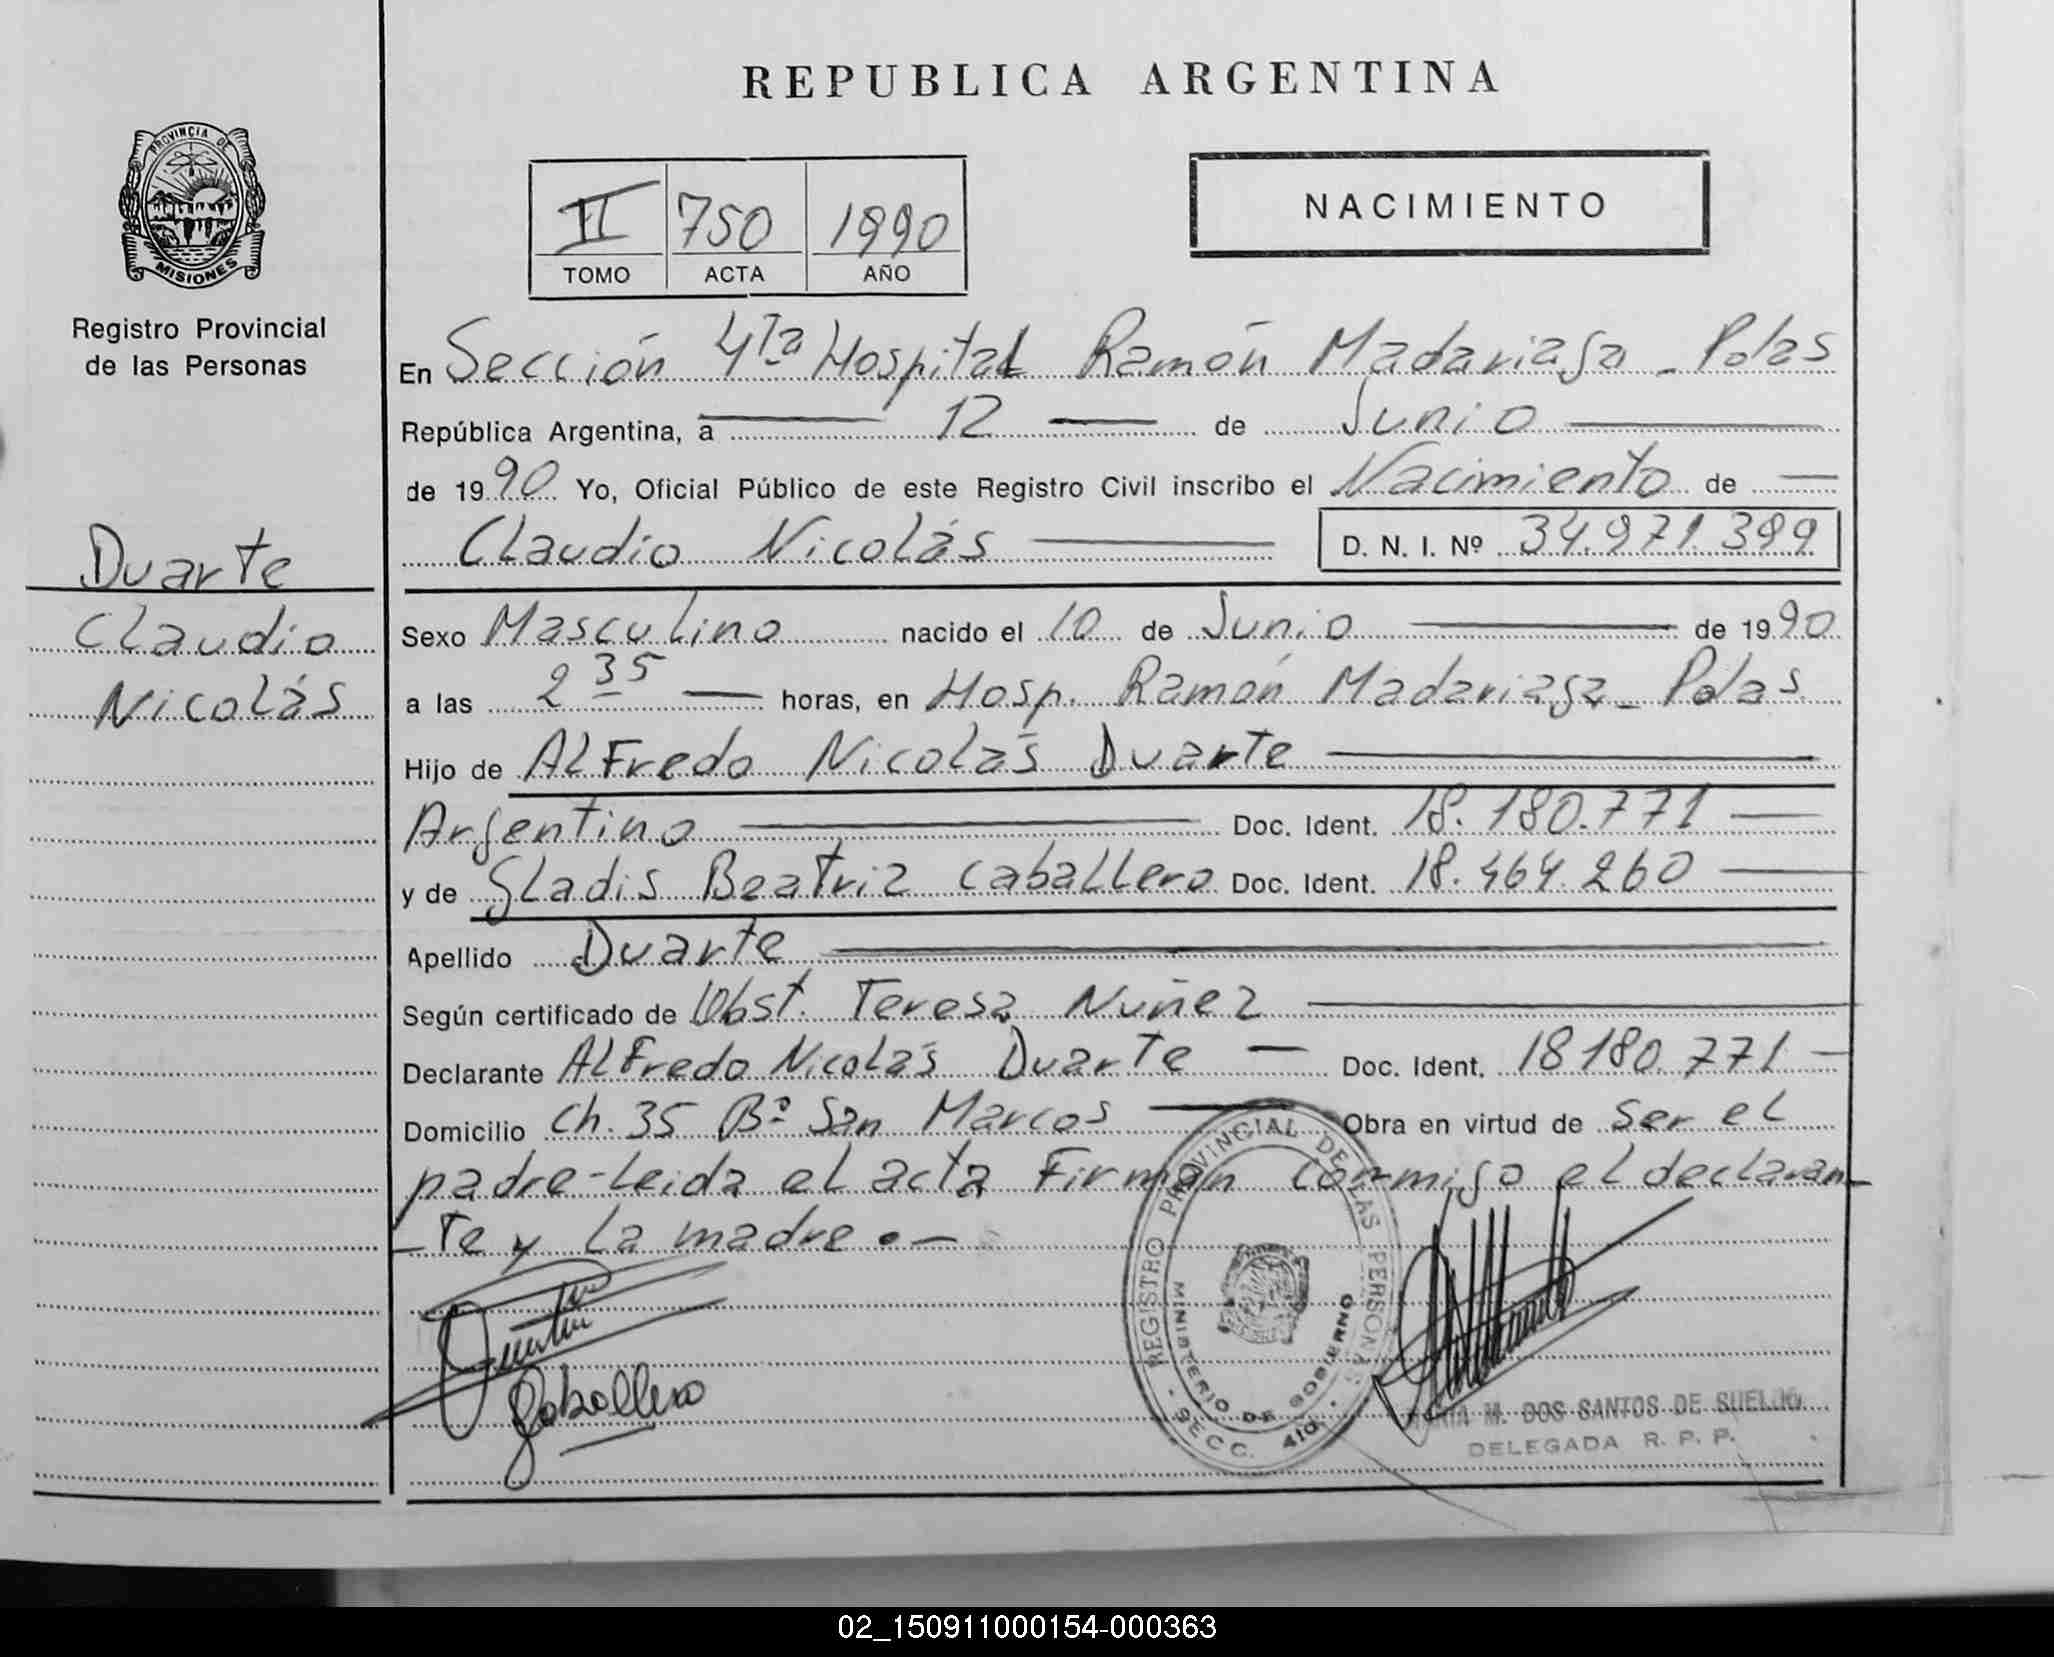 REPUBLICA ARGENTINA
PROVINCIA DE
MISIONES
Registro Provincial
de las Personas
II 750 1990
TOMO ACTA AÑO
NACIMIENTO
En Sección 4ta Hospital Ramón Madariaga - Pdas
República Argentina, a 12 de Junio
de 1990 Yo, Oficial Público de este Registro Civil inscribo el Nacimiento de
Claudio Nicolás D. N. I. Nº 34.971.399
Duarte
Claudio
Nicolás
Sexo Masculino nacido el 10 de Junio de 1990
a las 2 35 horas, en Hosp. Ramón Madariaga - Pdas
Hijo de Alfredo Nicolás Duarte
Argentino Doc. Ident. 18.180.771
y de Gladis Beatriz Caballero Doc. Ident. 18.464.260
Apellido Duarte
Según certificado de Obst. Teresa Nuñez
Declarante Alfredo Nicolás Duarte Doc. Ident. 18180.771
Domicilio Ch. 35 Bº San Marcos Obra en virtud de ser el
padre-leida el acta Firman conmigo el declaran-
-te y la madre.-
Caballero
REGISTRO PROVINCIAL DE LAS PERSONAS
MINISTERIO DE GOBIERNO
SECC. 4ta.
MARIA M. DOS SANTOS DE SUELDO
DELEGADA R. P. P.
02_150911000154-000363